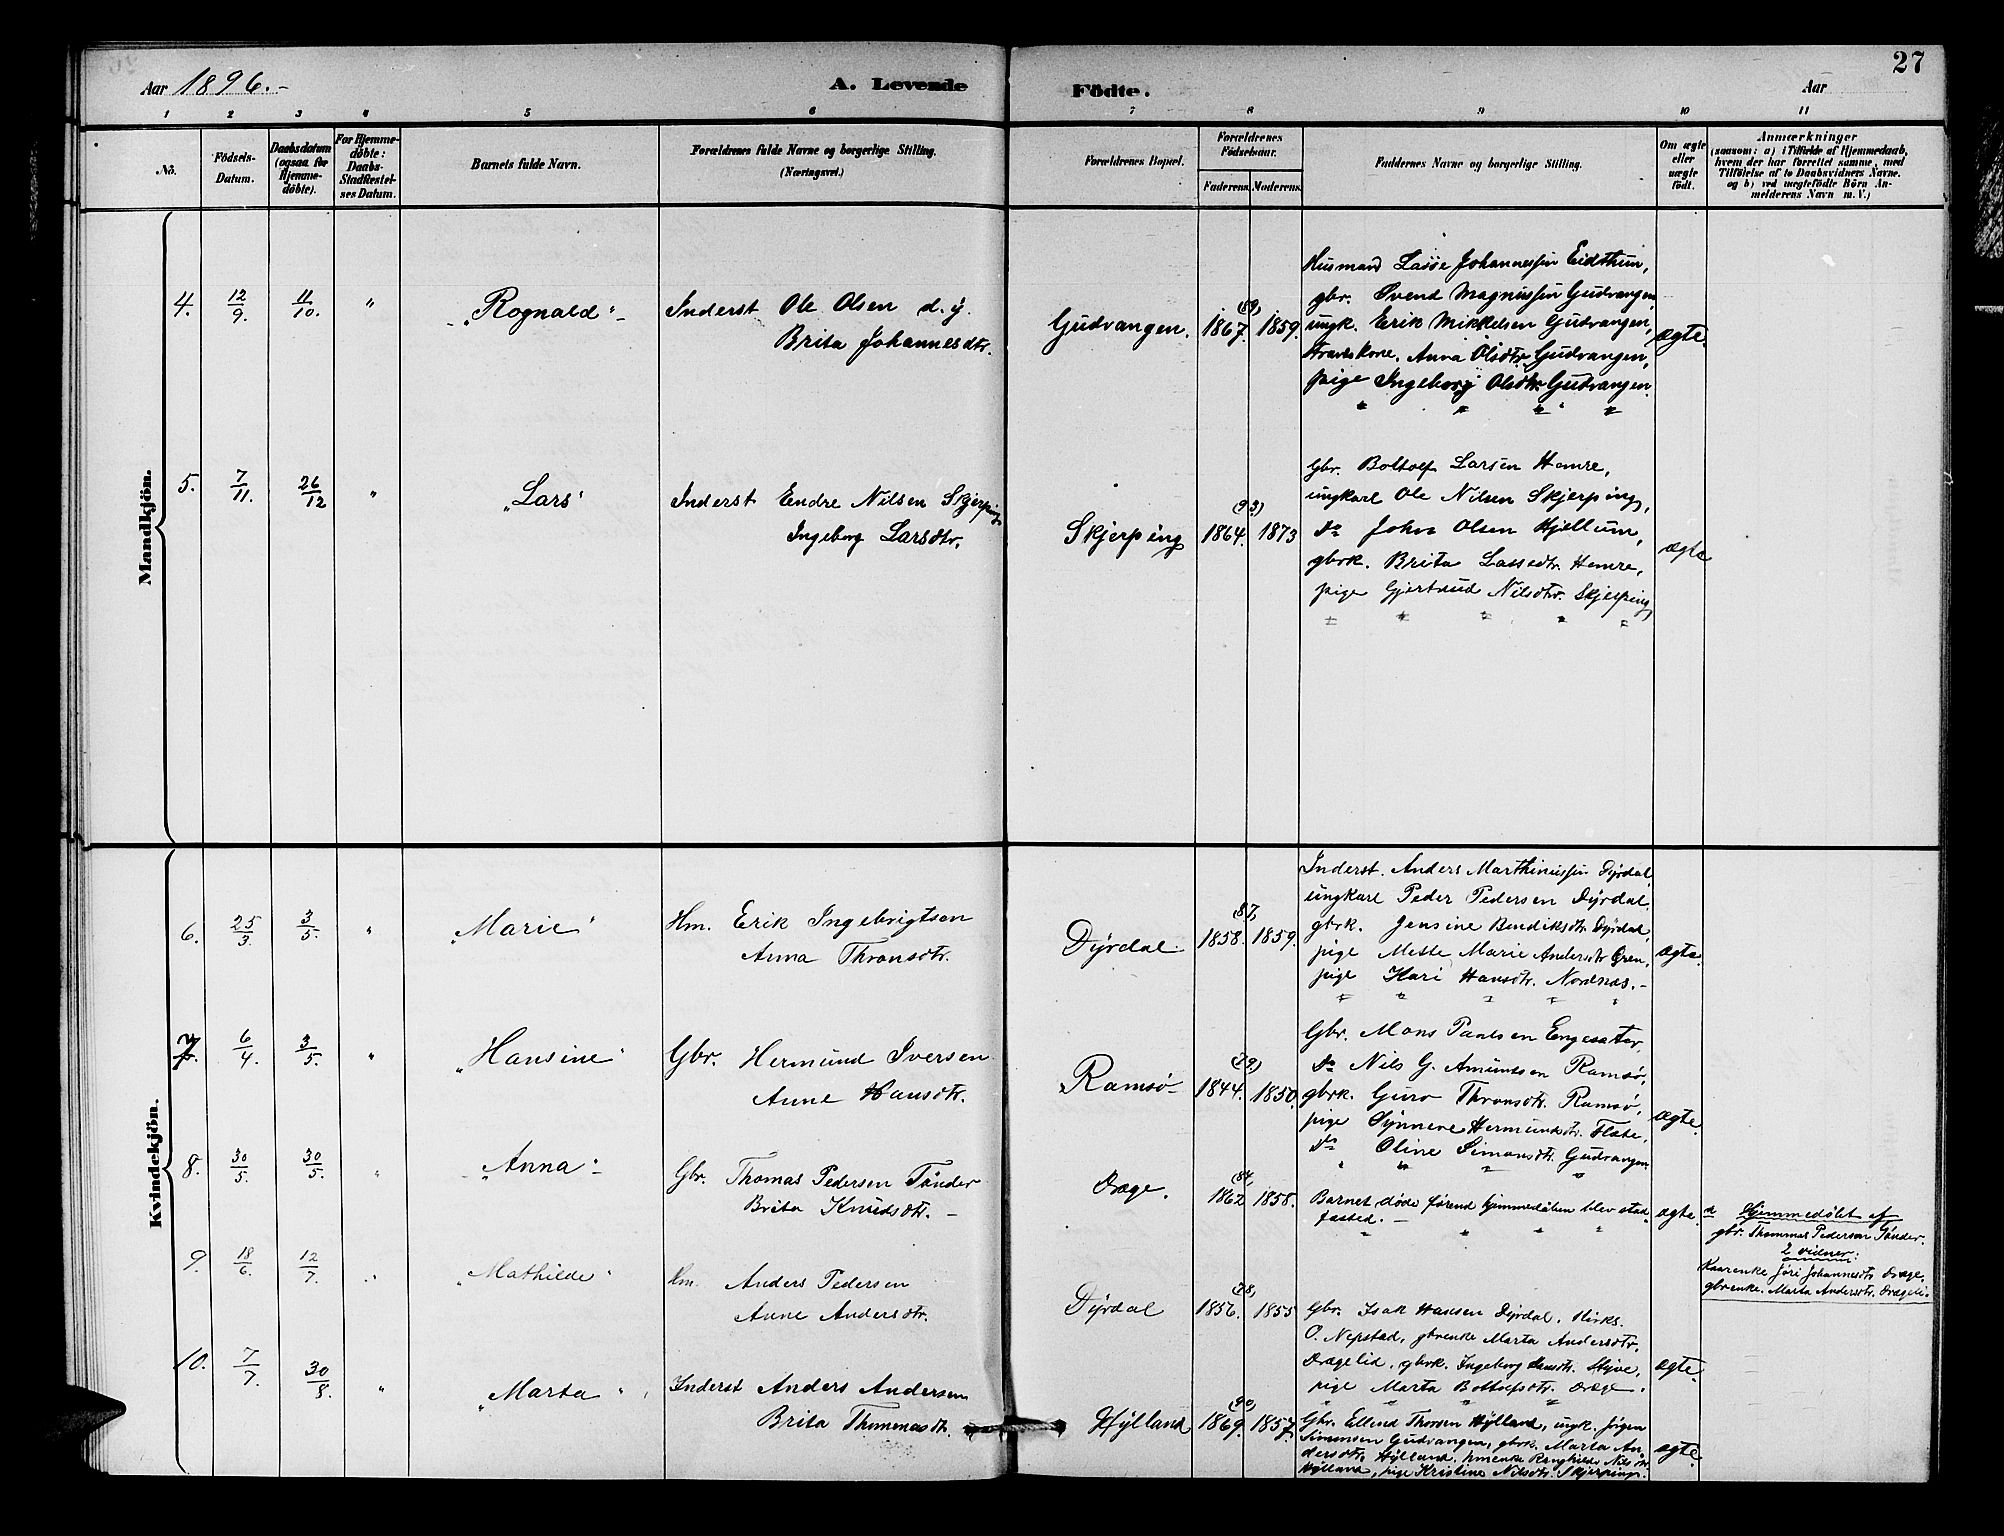 27
Aar 1896.-
A. Levende Födte.
Aar
1 2 3 4 5 6 7 8 9 10 11
No.
Födsels-Datum.
Daabsdatum (ogsaa for Hjemmedöbte).
For Hjemmedöbte: Daabs-Stadfæstelses Datum.
Barnets fulde Navn.
Forældrenes fulde Navne og borgerlige Stilling.
(Næringsvei.)
Forældrenes Bopæl.
Forældrenes Födselsaar.
Faderens. Moderens.
Faddernes Navne og borgerlige Stilling.
Om ægte eller uægte födt.
Anmærkninger
(saasom: a) i Tilfælde af Hjemmedaab,
hvem der har forrettet samme, med
Tilföielse af to Daabsvidners Navne.
og b) ved uægtefödte Börn Anmelderens Navn m. V.)
Mandkjön.
4. 12/9. 11/10. " "Rognald"
Inderst Ole Olsen d. y.
Brita Johannesdtr.
Gudvangen. 1867. (89) 1859.
Husmand Lasse Johannessen Eidthun,
gbr. Svend Magnussen Gudvangen,
ungk. Erik Mikkelsen Gudvangen,
Anna Olsdtr. Gudvangen,
pige Ingeborg Olsdtr. Gudvangen.
ægte.
5. 7/11. 26/12 " "Lars"
Inderst Endre Nilsen Skjerping
Ingeborg Larsdtr.
Skjerping 1864. (93) 1873
Gbr. Boltolf Larsen Hemre,
ungkarl Ole Nilsen Skjerping,
Do John Olsen Hjellum,
gbrk. Brita Lassedtr. Hemre,
pige Gjertrud Nilsdtr. Skjerping
ægte
Kvindekjön.
6. 25/3. 3/5. " "Marie"
Hm. Erik Ingebrigtsen
Anna Thronsdtr.
Dyrdal. 1858. (87) 1859.
Inderst. Anders Marthinussen Dyrdal,
ungkarl Peder Pedersen Dyrdal,
gbrk. Jensine Bendiksdtr. Dyrdal,
pige Mette Marie Andersdtr. Gren,
pige Kari Hansdtr. Nordnæs.-
ægte.
7. 6/4. 3/5. " "Hansine"
Gbr. Hermund Iversen
Anne Hansdtr.
Ramsø 1844. (79) 1850.
Gbr. Mons Paulsen Engesæter,
Do Nils G. Amundsen Ramsø,
gbrk. Guro Thronsdtr. Ramsø,
pige Synneve Hermundsdtr. Flate,
Do Oline Simonsdtr. Gudvangen
ægte.
8. 30/5. 30/5. " "Anna"
Gbr. Thomas Pedersen Tønder
Brita Knudsdtr. -
Dræge. 1862 (84) 1858.
Barnet døde førend hjemmedåben blev stad-
fæsted. -
ægte.
d Hjemmedøbt af
gbr. Thommas Pedersen Tønder.
2 vidner:
Kaarenke Jøri Johannesdtr. Dræge,
gbrenke. Marta Andersdtr. Drægeli.
9. 18/6. 12/7. " "Mathilde"
Hm. Anders Pedersen
Anne Andersdtr.
Dyrdal 1856. (78) 1855
Gbr. Isak Hansen Dyrdal,
O. Nepstad, gbrenke Marta Andersdtr.
Drægelid, gbrk. Ingeborg Hansdtr. Styve,
pige Marta Boltolfsdtr. Dræge.
ægte.
10. 7/7. 30/8. " "Marta"
Inderst Anders Andersen
Brita Thommasdtr.
Hylland 1869. (90) 1857.
Gbr. Ellend Thorsen Hylland, ungk. Jørgen
Simonsen Gudvangen, gbrk. Marta An-
dersdtr. Hylland, hmenke Ragnhild Nilsdtr.
Hylland, pige Kristine Nilsdtr. Skjerping.
ægte.